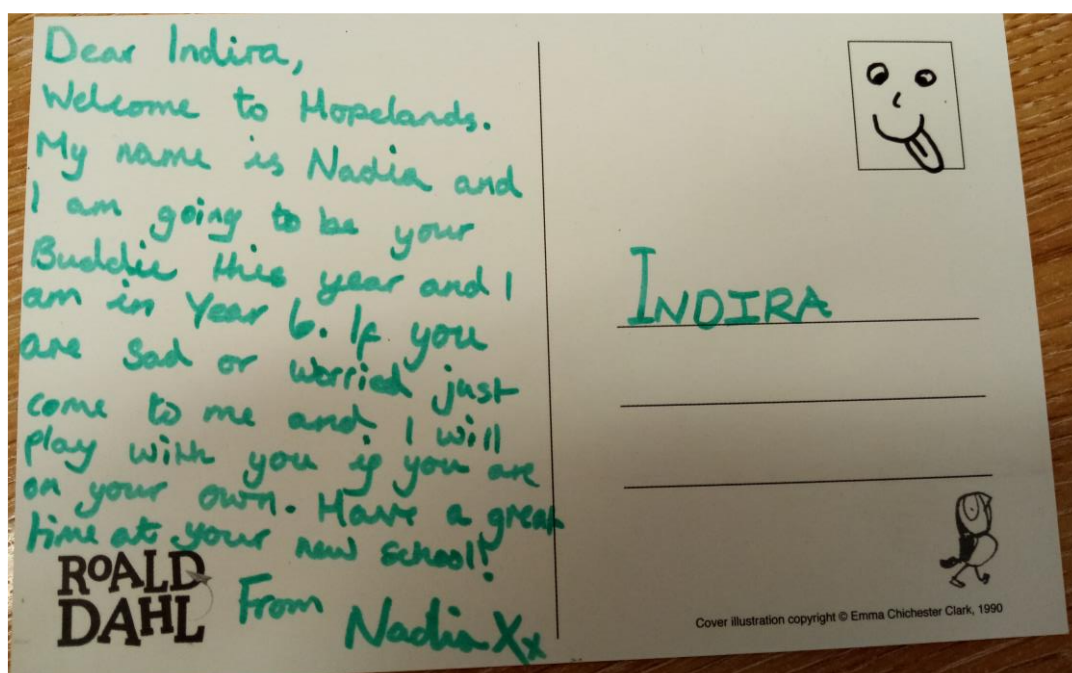 Dear Indira,
Welcome to Hopelands.
My name is Nadia and
I am going to be your
Buddie this year and I
am in Year 6. If you
are sad or worried just
come to me and I will
play with you if you are
on your own. Have a great
time at your new school!
From
Nadia Xx
ROALD
DAHL
INDIRA
Cover illustration copyright © Emma Chichester Clark, 1990